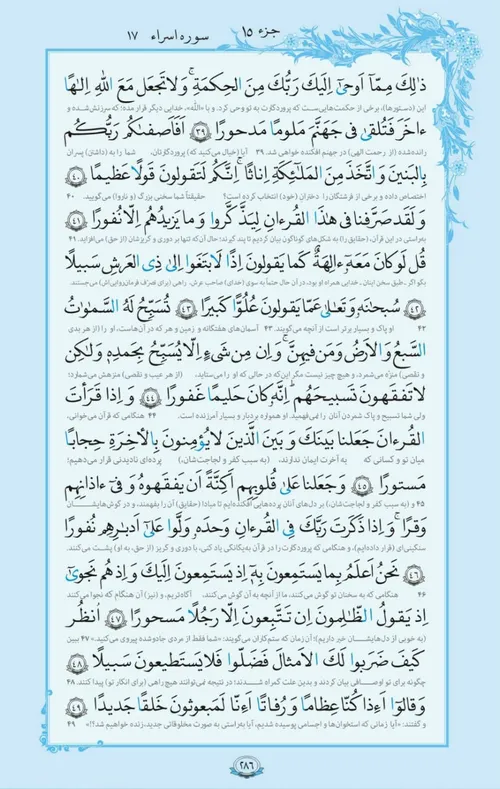 جزء ۱۵
سوره اسراء ۱۷
ذٰلِكَ مِمّا اَوحىٰ اِلَيكَ رَبُّكَ مِنَ الحِكمَةِ ۚ وَلا تَجعَل مَعَ اللهِ اِلٰهًا
این (دستورها)، برخی از حکمت‌هایی‌ست که پروردگارت به تو وحی کرد. و با «الله»، خدایی دیگر قرار مده؛ که سرزنش‌شده و
ءاخَرَ فَتُلقىٰ فى جَهَنَّمَ مَلومًا مَدحورًا ﴿٣٩﴾ اَفَاَصفىٰكُم رَبُّكُم
رانده‌شده (از رحمت الهی) در جهنم افکنده خواهی شد. ۳۹ آیا (خیال می‌کنید که) پروردگارتان، شما را به (داشتن) پسران
بِالبَنينَ وَ اتَّخَذَ مِنَ المَلٰئِكَةِ اِناثًا ۚ اِنَّكُم لَتَقولونَ قَولًا عَظيمًا ﴿٤٠﴾
اختصاص داده و برخی از فرشتگان را دختران (خود) انتخاب کرده است؟ حقیقتاً شما سخنی بزرگ (و ناروا) می‌گویید. ۴۰
وَ لَقَد صَرَّفنا فى هٰذَا القُرءانِ لِيَذَّكَّروا وَ ما يَزيدُهُم اِلّا نُفورًا ﴿٤١﴾
به‌راستی در این قرآن، (حقایق را) به شکل‌های گوناگون بیان کردیم تا پند گیرند؛ حال آن‌که تنها بر دوری و گریزشان (از حق) می‌افزاید. ۴۱
قُل لَو كانَ مَعَهٗٓ ءالِهَةٌ كَما يَقولونَ اِذًا لَابتَغَوا اِلىٰ ذِى العَرشِ سَبيلًا
بگو: اگر ـ طبق سخن اینان ـ خدایی همراه او بود، در آن حال حتماً به سوی (خدای) صاحب عرش، راهی (برای تصرف فرمان‌روایی‌اش) می‌جستند.
﴿٤٢﴾ سُبحٰنَهٗ وَ تَعالىٰ عَمّا يَقولونَ عُلُوًّا كَبيرًا ﴿٤٣﴾ تُسَبِّحُ لَهُ السَّمٰوٰتُ
۴۲ او پاک و بسیار برتر است از آنچه می‌گویند. ۴۳ آسمان‌های هفتگانه و زمین و هر که در آن‌هاست، او را (از هر بدی
السَّبعُ وَ الاَرضُ وَ مَن فيهِنَّ ۚ وَ اِن مِن شَىءٍ اِلّا يُسَبِّحُ بِحَمدِهٖ وَ لٰكِن
و نقصی) منزّه می‌شمرد، و هیچ چیز نیست مگر این‌که در حالی که او را می‌ستاید، (از هر عیب و نقصی) منزهش می‌شمارد؛
لا تَفقَهونَ تَسبيحَهُم ۗ اِنَّهٗ كانَ حَليمًا غَفورًا ﴿٤٤﴾ وَ اِذا قَرَأتَ
ولی شما تسبیح و پاک شمردن آنان را نمی‌فهمید. او همواره بردبار و بسیار آمرزنده است. ۴۴ هنگامی که قرآن می‌خوانی،
القُرءانَ جَعَلنا بَينَكَ وَ بَينَ الَّذينَ لا يُؤمِنونَ بِالاٰخِرَةِ حِجابًا
میان تو و کسانی که به آخرت ایمان ندارند، (به سبب کفر و لجاجت‌شان،) پرده‌ای نادیدنی قرار می‌دهیم؛
مَستورًا ﴿٤٥﴾ وَ جَعَلنا عَلىٰ قُلوبِهِم اَكِنَّةً اَن يَفقَهوهُ وَ فى ءاذانِهِم
۴۵ و (به سبب کفر و لجاجت‌شان) بر دل‌های آنان پرده‌هایی افکنده‌ایم تا مبادا (حقایق) آن را بفهمند، و در گوش‌هایشان
وَقرًا ۚ وَ اِذا ذَكَرتَ رَبَّكَ فِى القُرءانِ وَحدَهٗ وَلَّوا عَلىٰٓ اَدبٰرِهِم نُفورًا
سنگینی‌ای (قرار داده‌ایم)، و هنگامی که پروردگارت را در قرآن به‌یگانگی یاد کنی، با دوری و گریز (از حق، به او) پشت می‌کنند.
﴿٤٦﴾ نَحنُ اَعلَمُ بِما يَستَمِعونَ بِهٖٓ اِذ يَستَمِعونَ اِلَيكَ وَ اِذ هُم نَجوىٰٓ
۴۶ هنگامی که به سخنان تو گوش می‌کنند، ما از آنچه به آن گوش می‌کنند، آگاه‌تریم، و (نیز) آن هنگام که نجوا می‌کنند
اِذ يَقولُ الظّٰلِمونَ اِن تَتَّبِعونَ اِلّا رَجُلًا مَسحورًا ﴿٤٧﴾ اُنظُر
(به خوبی از دل‌هایشان خبر داریم)؛ آن زمان که ستم‌کاران می‌گویند: «شما فقط از مردی جادوشده پیروی می‌کنید.» ۴۷ ببین
كَيفَ ضَرَبوا لَكَ الاَمثالَ فَضَلّوا فَلا يَستَطيعونَ سَبيلًا ﴿٤٨﴾
چگونه برای تو اوصافی بیان کردند و بدین علت گمراه شدند؛ در نتیجه نمی‌توانند هیچ راهی (برای انکار تو) پیدا کنند. ۴۸
وَ قالوٓا اَءِذا كُنّا عِظامًا وَ رُفاتًا اَءِنّا لَمَبعوثونَ خَلقًا جَديدًا ﴿٤٩﴾
و گفتند: «آیا زمانی که استخوان‌ها و اجسامی پوسیده شدیم، آیا به‌راستی به صورت مخلوقاتی جدید، زنده خواهیم شد؟!» ۴۹
۲۸۶